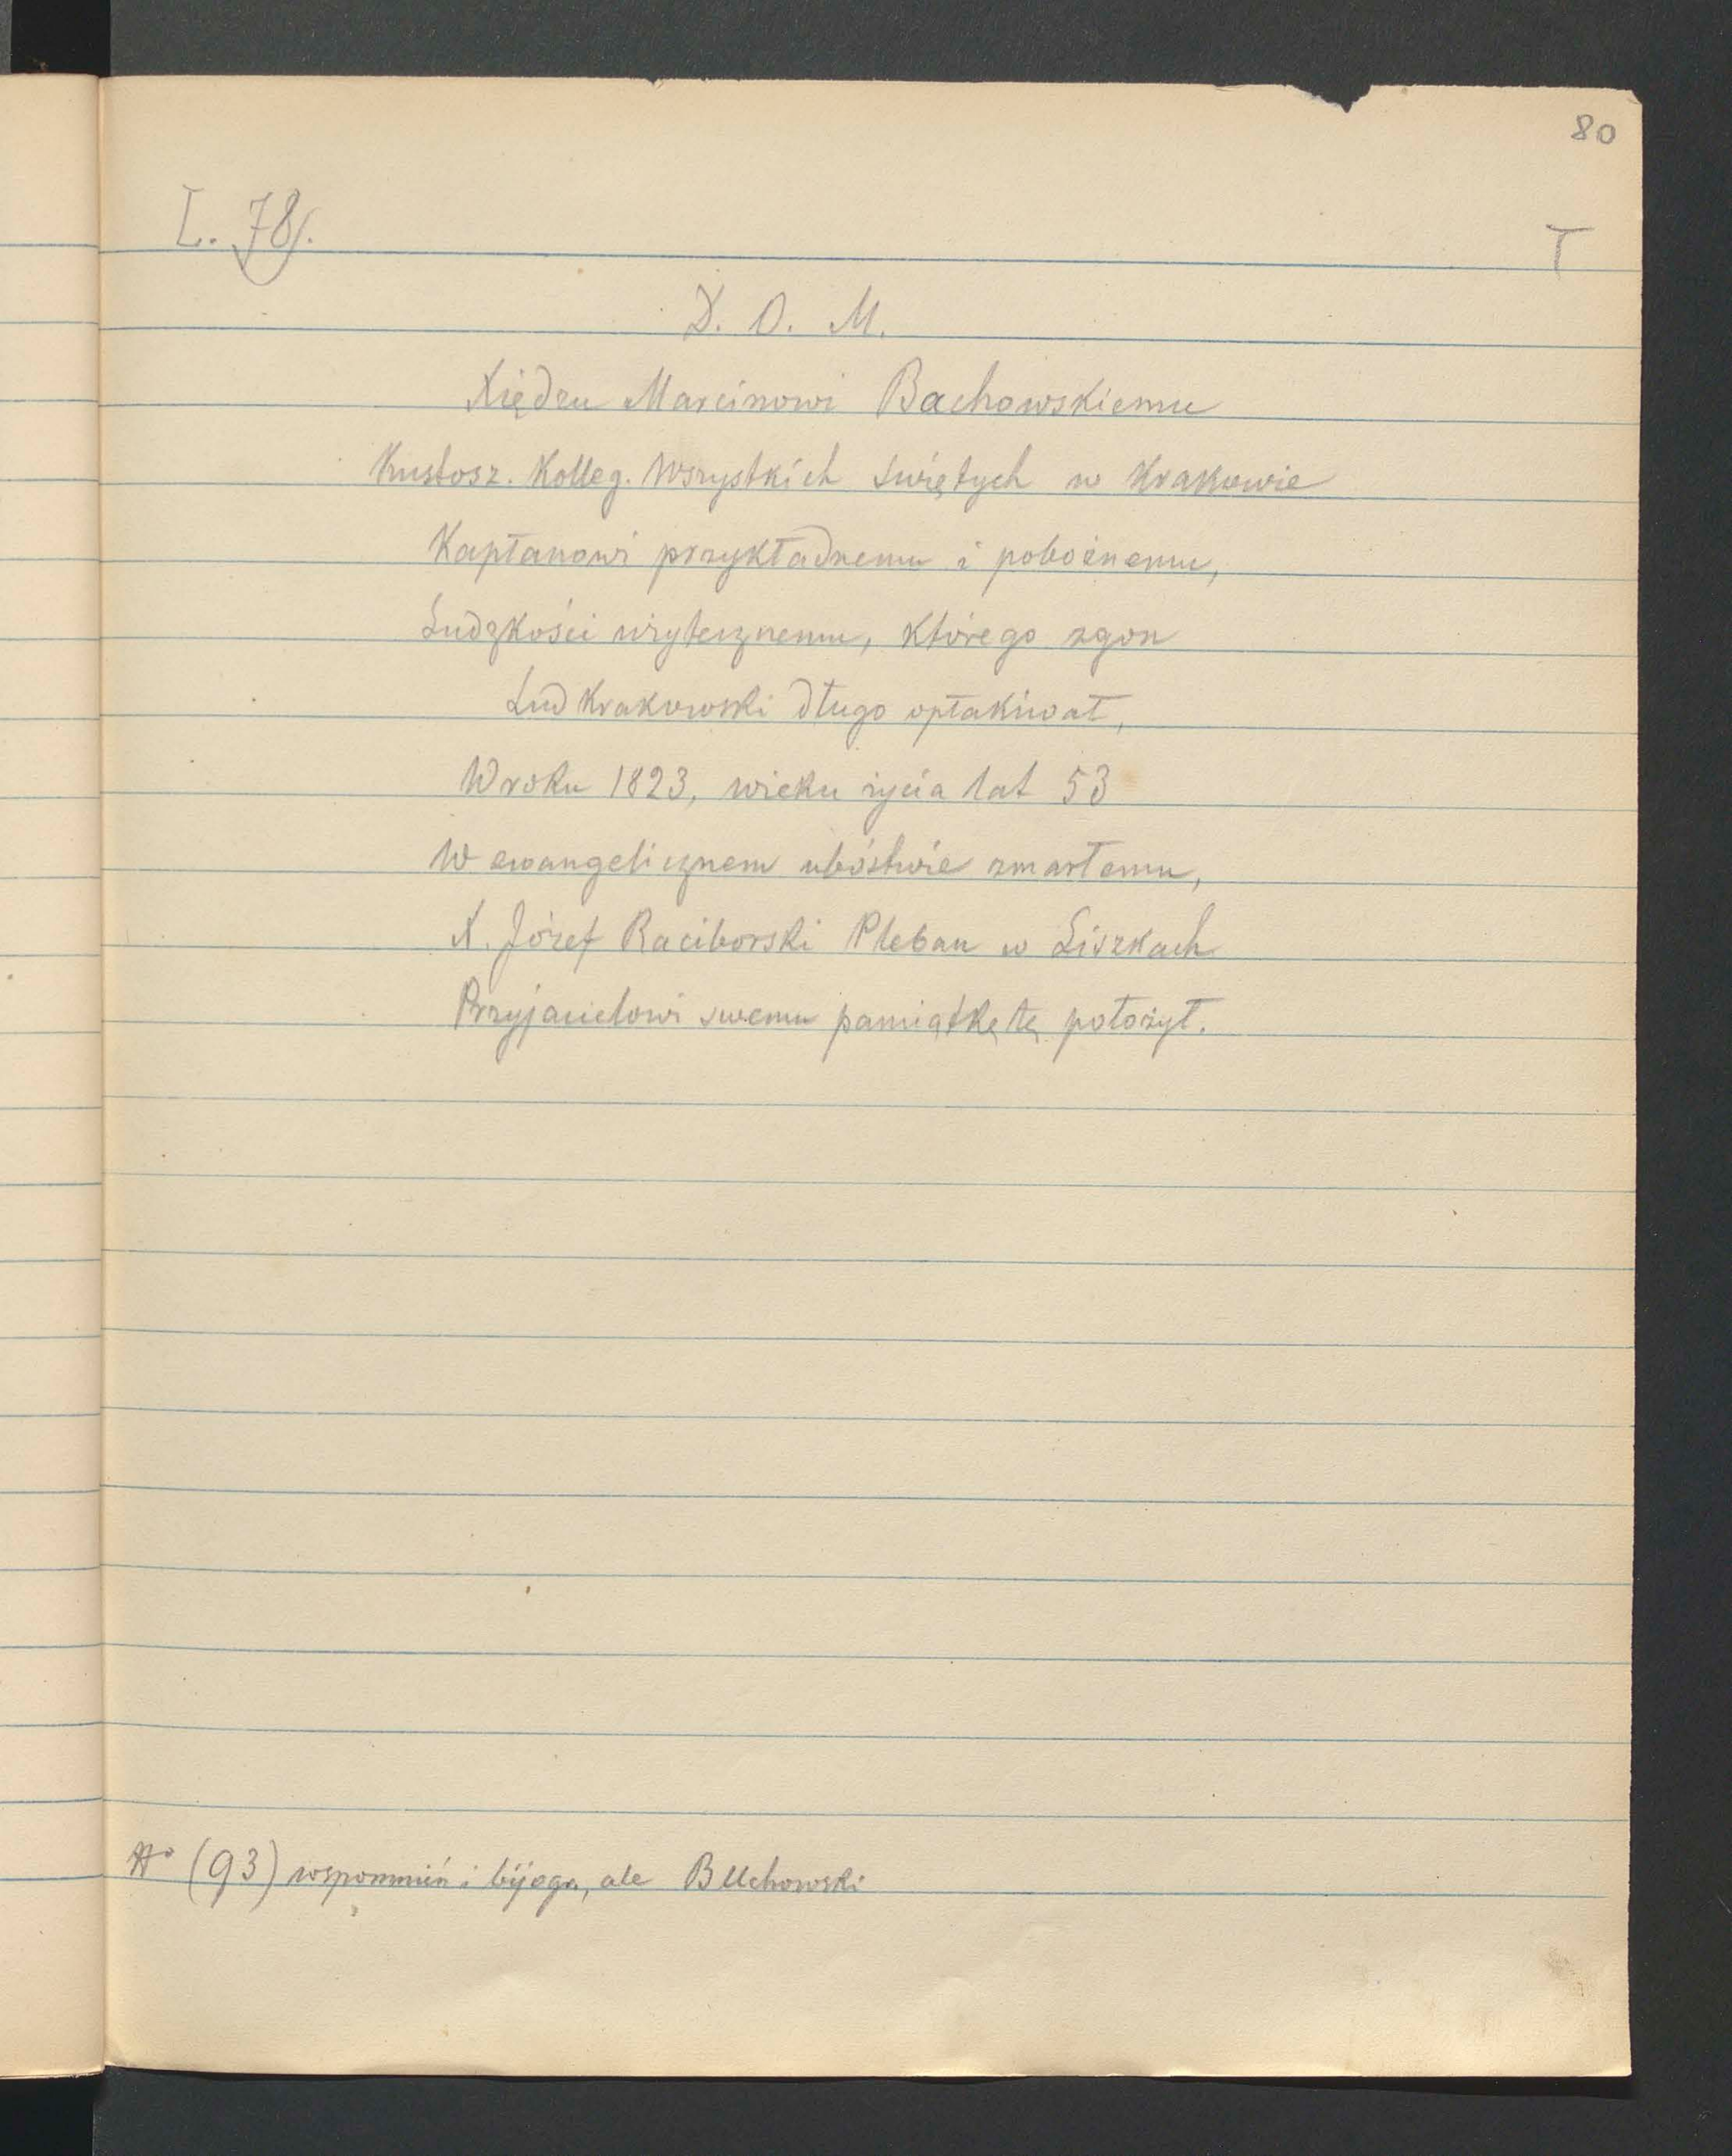 80
L. 78.
T
D. O. M.
Xiędzu Marcinowi Bachowskiemu
Kustosz. Kolleg. Wszystkich Świętych w Krakowie
Kapłanowi przykładnemu i pobożnemu,
Ludzkości użytecznemu, którego zgon
Lud Krakowski długo opłakiwał,
W roku 1823, wieku życia lat 53
W ewangelicznem ubóstwie zmarłemu,
X. Józef Raciborski Pleban w Liszkach
Przyjacielowi swemu pamiątkę tę położył.
(93) ale BUchowski